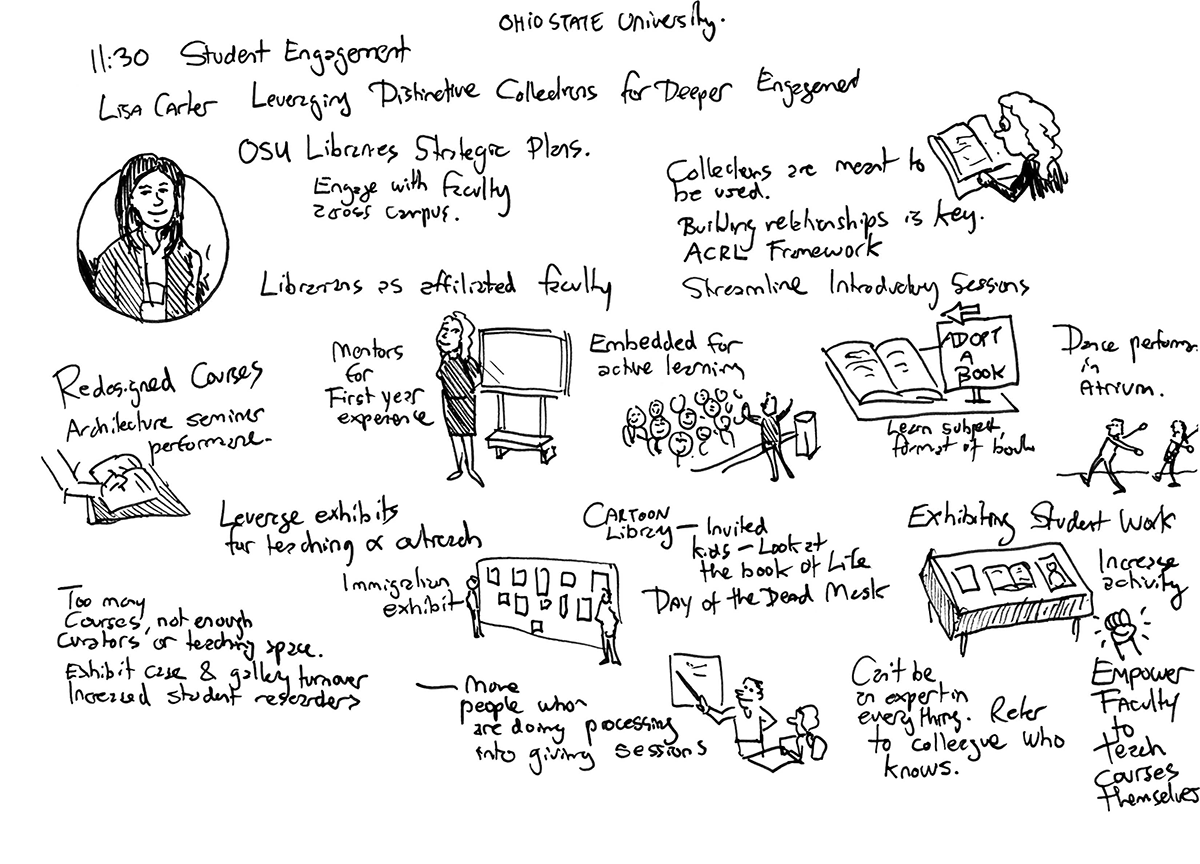 OHIO STATE University.
11:30 Student Engagement
Lisa Carter Leveraging Distinctive Collections for Deeper Engagement
OSU Libraries Strategic Plans.
Engage with faculty
across campus.
Collections are meant to
be used.
Building relationships is key.
ACRL Framework
Streamline Introductory Sessions
Librarians as affiliated faculty
Redesigned Courses
Architecture seminar
performance.
Mentors
for
First year
experience
Embedded for
active learning
ADOPT
A
BOOK
Learn subject,
format of book
Dance performa
in
Atrium.
Leverage exhibits
for teaching & outreach
Immigration
exhibit
CARTOON
Library – Invited
kids – Look at
the book of Life
Day of the Dead Mask
Exhibiting Student Work
Increase
activity
Too many
courses, not enough
curators, or teaching space.
Exhibit case & gallery turnover
Increased student researchers
— Move
people who
are doing processing
into giving sessions
Can't be
an expert in
everything. Refer
to colleague who
knows.
Empower
Faculty
to
teach
courses
themselves